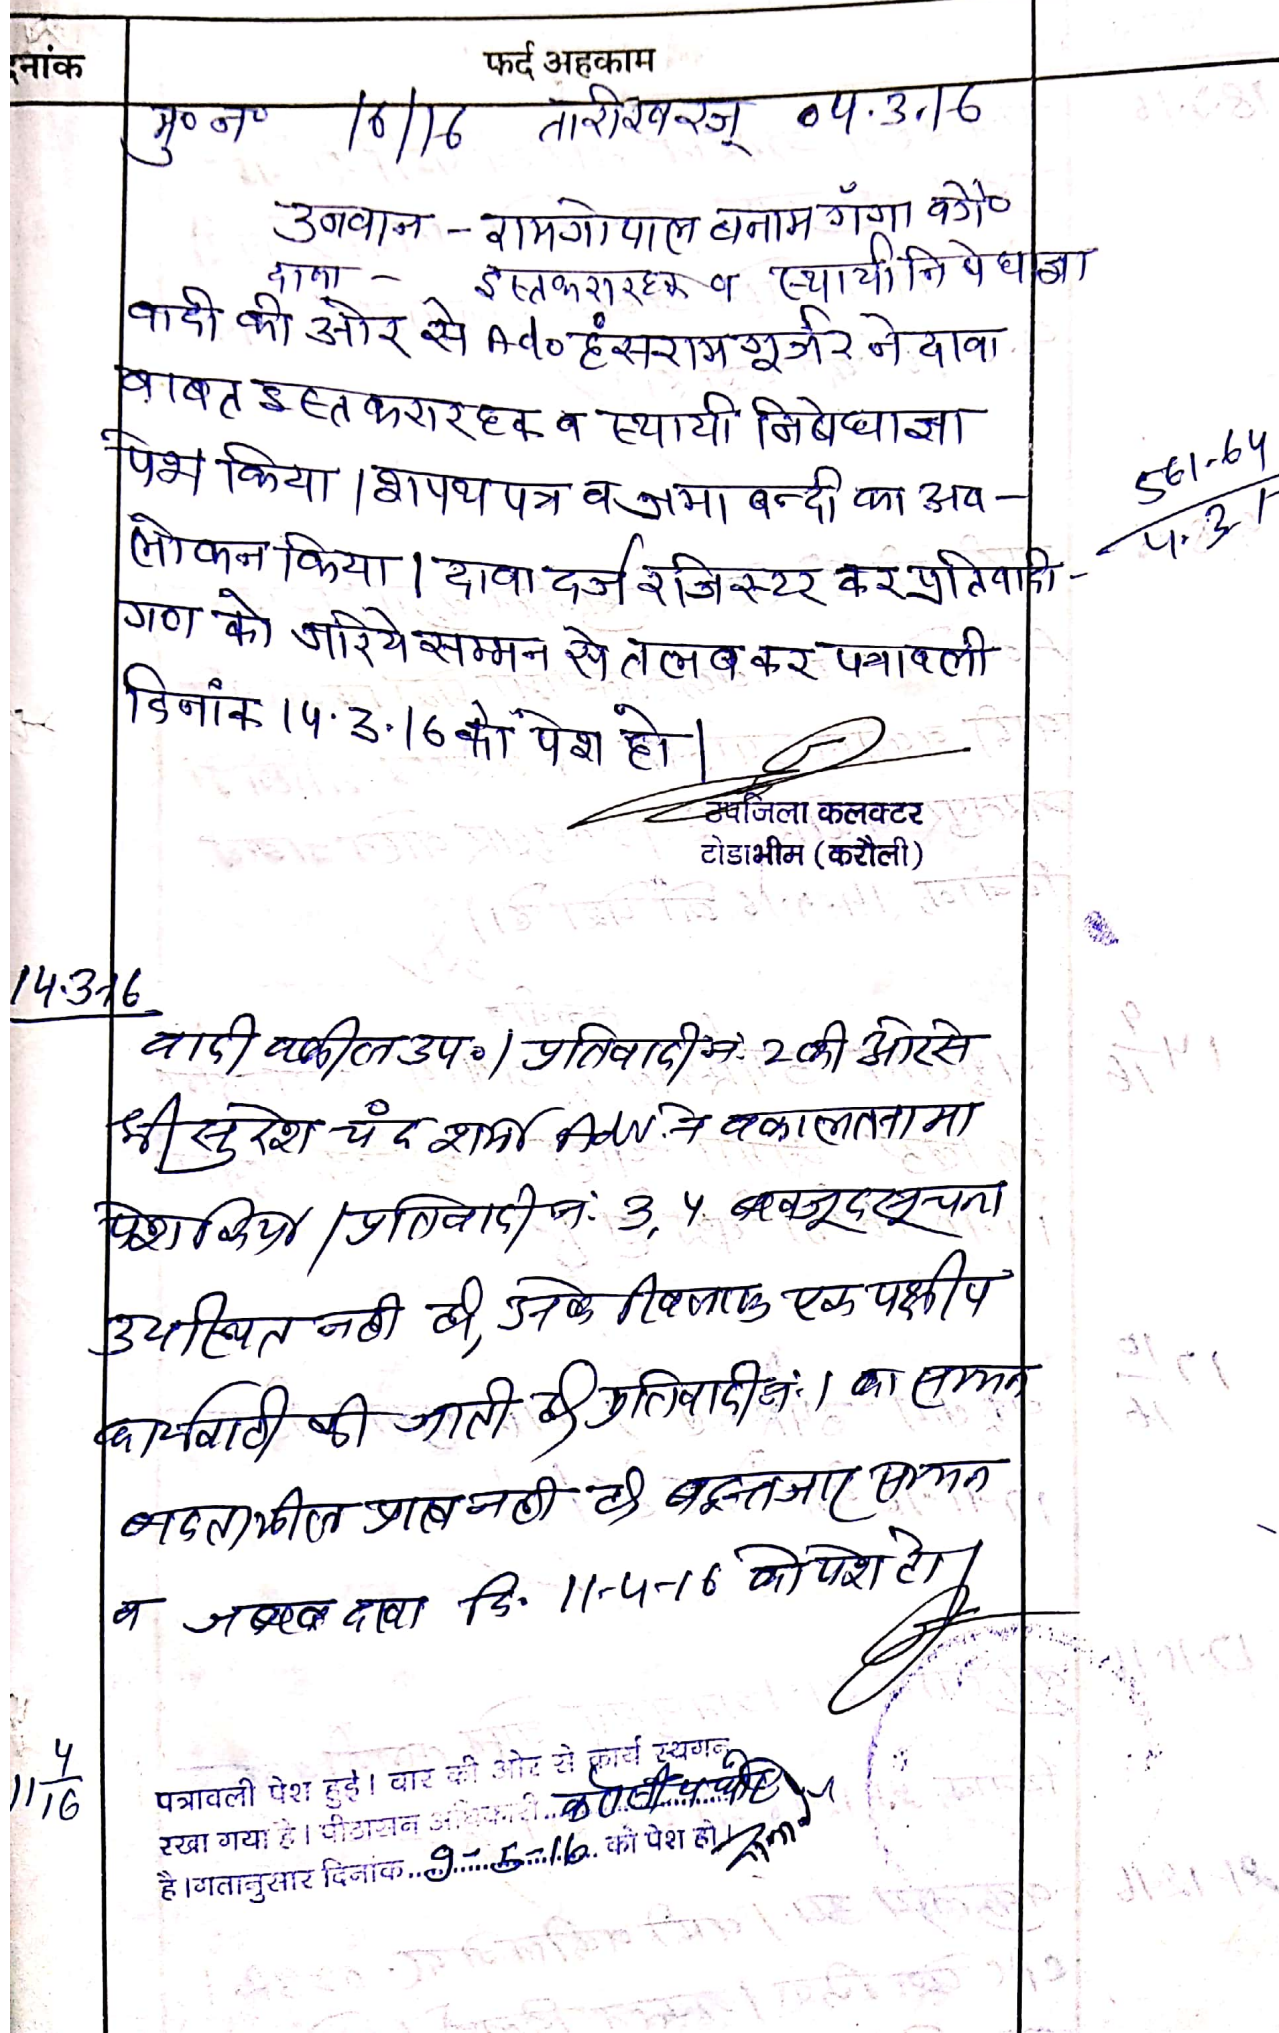 दिनांक
फर्द अहकाम
मु० न० 16/16 तारीखरजू 04.3.16
उनवान - रामगोपाल बनाम गँगा वगै०
दावा - इस्तकरारहक व स्थायी निषेधाज्ञा
वादी की ओर से Ado हंसराम गूर्जर ने दावा
बाबत इस्तकरारहक व स्थायी निषेधाज्ञा
पेश किया। शपथ पत्र व जमाबन्दी का अव-
561-64
लोकन किया। दावा दर्ज रजिस्टर कर प्रतिवादी-
4.3
गण को जरिये सम्मन से तलब कर पत्रावली
दिनांक 14.3.16 को पेश हो।
उपजिला कलक्टर
टोडाभीम (करौली)
14.3.16
वादी वकील उप०। प्रतिवादी नं. 2 की ओर से
श्री सुरेश चंद शर्मा Adv. ने वकालतनामा
पेश किया। प्रतिवादी नं. 3, 4 बावजूद सूचना
उपस्थित नही है, उनके खिलाफ एक पक्षीय
कार्यवाही की जाती है। प्रतिवादी नं. 1 का सम्मन
बादतामील प्राप्त नही है। बइन्तजार सम्मन
व जबाब दावा दि. 11-4-16 को पेश हो।
11/4/16
पत्रावली पेश हुई। बार की ओर से कार्य स्थगन
रखा गया है। पीठासन अधिकारी
है। गतानुसार दिनांक 9-5-16 को पेश हो।